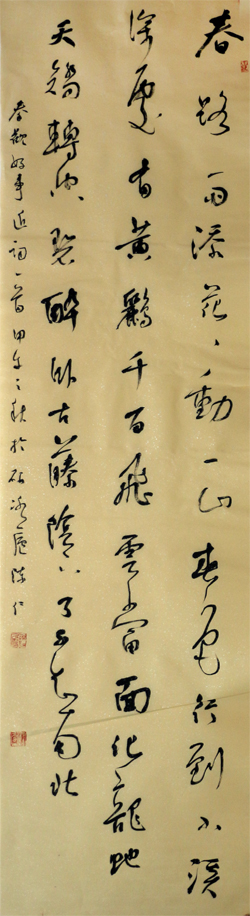 春路雨添花〻動一山春色行到小溪
深處有黃鸝千百飛雲當面化龍蛇
夭矯轉空碧醉臥古藤陰下了不知南北
秦觀好事近詞一首甲午之秋於